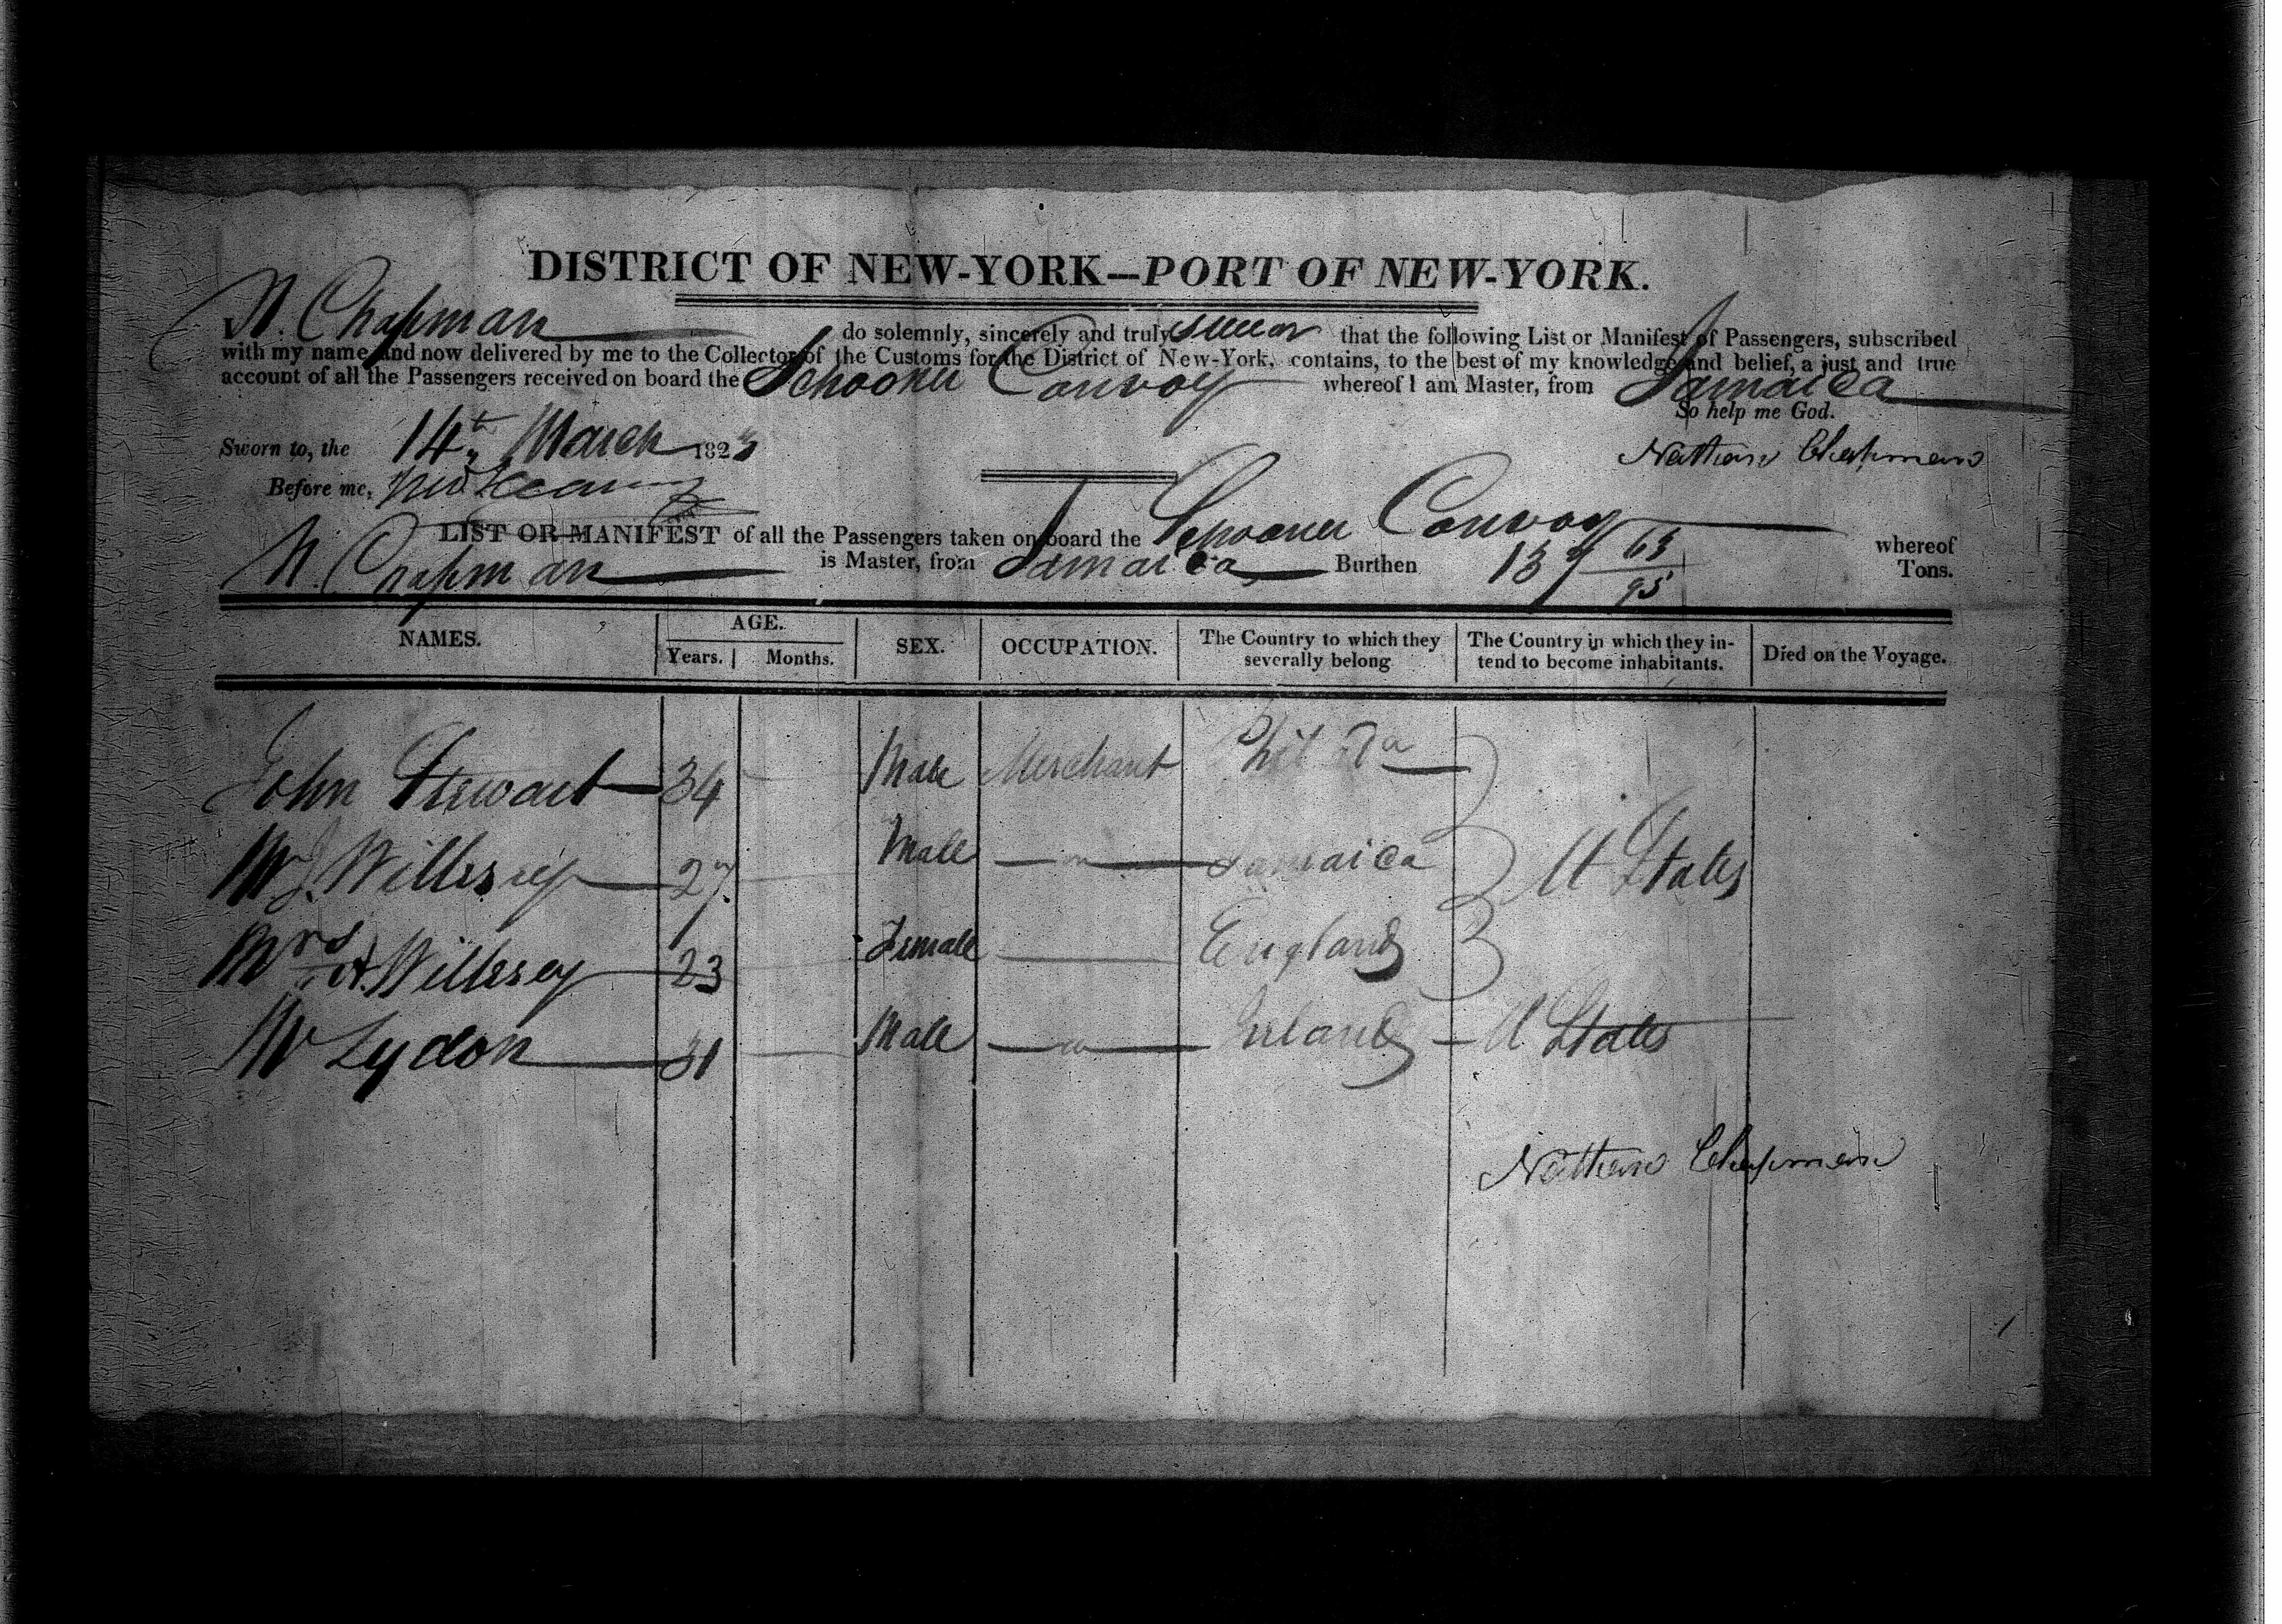 DISTRICT OF NEW-YORK—PORT OF NEW-YORK.
N. Chapman do solemnly, sincerely and truly swear that the following List or Manifest of Passengers, subscribed
with my name and now delivered by me to the Collector of the Customs for the District of New-York, contains, to the best of my knowledge and belief, a just and true
account of all the Passengers received on board the Schooner Convoy whereof I am Master, from Jamaica
So help me God.
Sworn to, the 14th March 1823 Nathan Chapman
Before me,
LIST OR MANIFEST of all the Passengers taken on board the Schooner Convoy whereof
N. Chapman is Master, from Jamaica Burthen 137 63/95 Tons.
NAMES. AGE. Years. Months. SEX. OCCUPATION. The Country to which they severally belong The Country in which they intend to become inhabitants. Died on the Voyage.
John Stewart 34 Male Merchant Phil da
Mr J. Willesey 27 Male — " — Jamaica U States
Mrs Willesey 23 Female — England
Mr Lydon 31 Male — " — Ireland — U States
Nathan Chapman